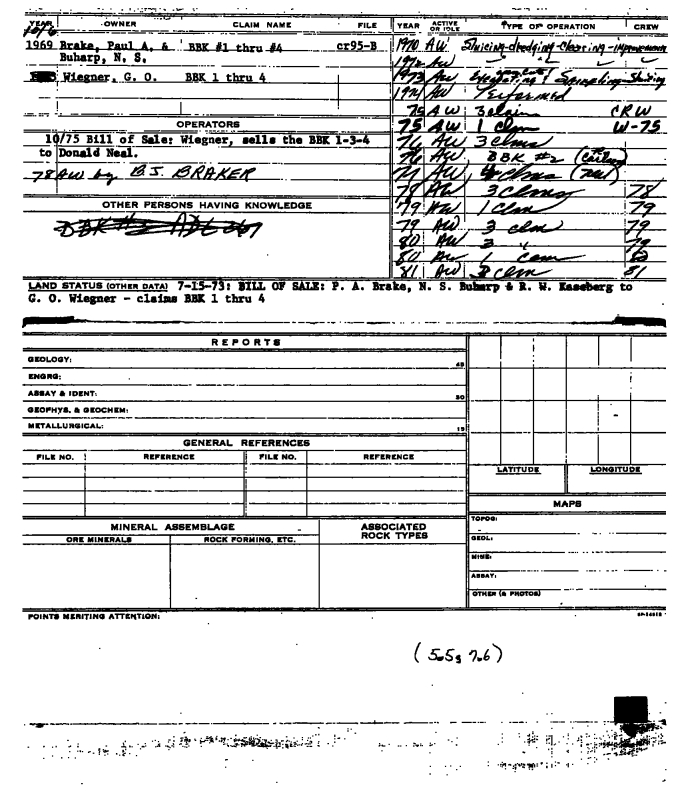 YEAR OWNER CLAIM NAME FILE
1969 Brake, Paul A. & BBK #1 thru #4 cr95-B
Buharp, N. S.
Wiegner, G. O. BBK 1 thru 4
OPERATORS
10/75 Bill of Sale: Wiegner, sells the BBK 1-3-4
to Donald Neal.
78 AW by B.J. BRAKER
OTHER PERSONS HAVING KNOWLEDGE
YEAR ACTIVE OR IDLE TYPE OF OPERATION CREW
1970 AW Sluicing-dredging-clearing-improvements
1972 AW
1973 AW Sampling-
1974 AW Performed
75 AW 3 claim CRW
75 AW 1 clm W-75
76 AW 3 clms
76 AW BBK #2
77 AW clms
78 AW 3 clms 78
79 AW 1 clm 79
79 AW 3 clm 79
80 AW 3 " 79
80 AW 1 clm 80
81 AW clm 81
LAND STATUS (OTHER DATA) 7-15-73: BILL OF SALE: P. A. Brake, N. S. Buharp & R. W. Kaseberg to
G. O. Wiegner - claims BBK 1 thru 4
REPORTS
GEOLOGY: 45
ENGRG:
ASSAY & IDENT: 30
GEOPHYS. & GEOCHEM:
METALLURGICAL: 15
GENERAL REFERENCES
FILE NO. REFERENCE FILE NO. REFERENCE
LATITUDE LONGITUDE
MAPS
TOPOG:
GEOL:
MINE:
ASSAY:
OTHER (& PHOTOS)
MINERAL ASSEMBLAGE
ORE MINERALS ROCK FORMING, ETC.
ASSOCIATED
ROCK TYPES
POINTS MERITING ATTENTION:
(5.5, 7.6)